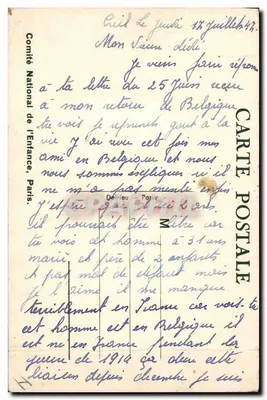 Creil Le Jeudi 17 Juillet 47.
Mon Vieux Dédé
Je viens faire répons
à ta lettre du 25 Juin recu
à mon retour de Belgique
tu vois je reprends gout a la
vie J'ai revu cet fois mes
ami en Belgique et nous
nous sommes expliquer si il
ne m'a pas menté enfin
j'espère que d'ici 2 ans
il pourrait être libre car
tu vois cet homme a 31 ans
marié et père de 2 enfants
et pas mal de défaut mais
je l'aime il me manque
terriblement en France car vois-tu
cet homme est en Belgique il
est né en France pendant la
guerre de 1914 ça dure cette
liaison depuis decembre je suis
Comité National de l'Enfance, Paris.
CARTE POSTALE
Paris
M